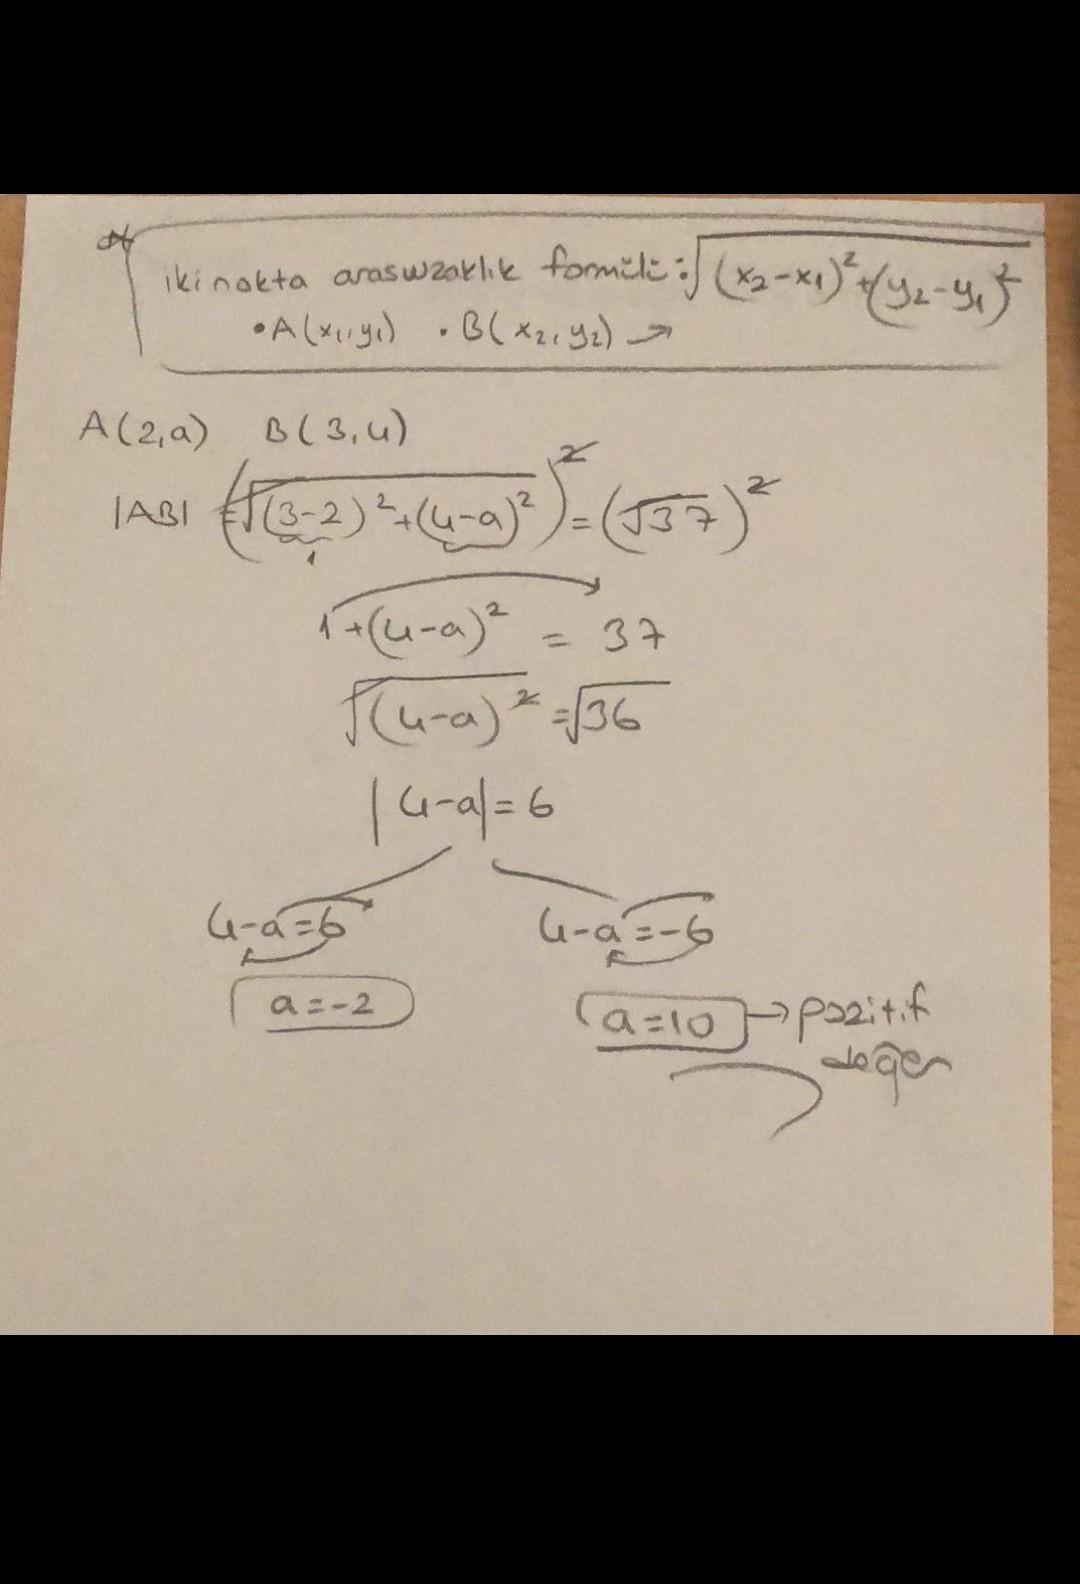 iki nokta arası uzaklık formülü: √((x₂-x₁)²+(y₂-y₁)²)
•A(x₁,y₁) •B(x₂,y₂) →
A(2,a) B(3,4)
|AB| = (√((3-2)²+(4-a)²))² = (√37)²
1
1+(4-a)² = 37
√(4-a)² = √36
|4-a| = 6
4-a=6 4-a=-6
a=-2 a=10 → pozitif
değer